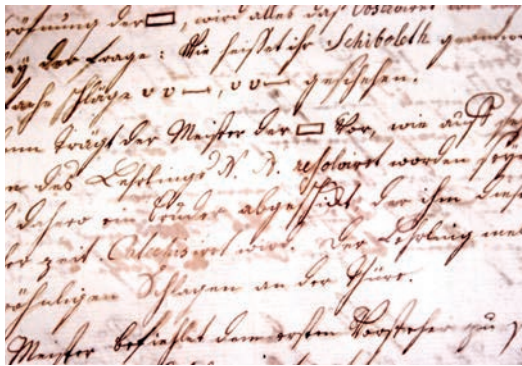 röfnung der ▭, wird alles das observiret
der Frage: Wie heisset ihr Schiboleth
Schläge ∪∪—, ∪∪— geschehen.
trägt der Meister der ▭ vor, wie auf
des Lehrlings N. N. resolviret worden seye
dahero ein Bruder abgeschickt, der ihm
zeit Catechisiret wird. Der Lehrling
öhnligen Schlagen an der Thüre.
Meister befiehlet dem ersten Vorsteher zu